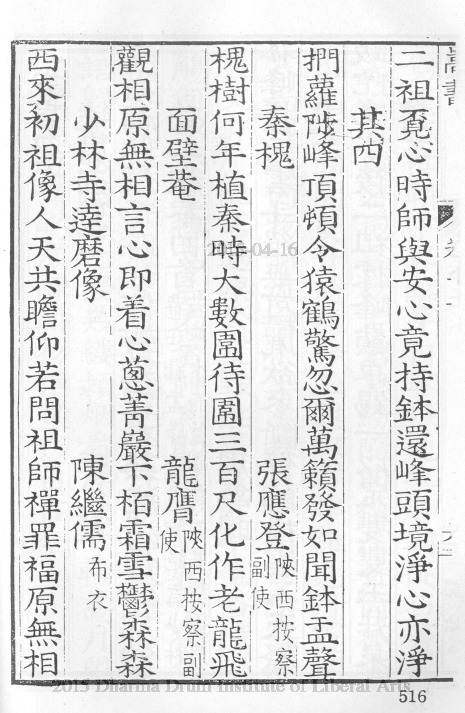 二祖覓心時師與安心竟持鉢還峰頭境淨心亦淨
其四
捫蘿陟峰頂頓令猿鶴驚忽爾萬籟發如聞鉢盂聲
秦槐 張應登 陝西按察副使
槐樹何年植秦時大數圍待圍三百尺化作老龍飛
面壁菴 龍膺 陝西按察副使
觀相原無相言心即着心蔥菁巖下栢霜雪鬱森森
少林寺達磨像 陳繼儒 布衣
西來初祖像人天共瞻仰若問祖師禪罪福原無相
2015-04-16
2015 Dharma Drum Institute of Liberal Arts
516